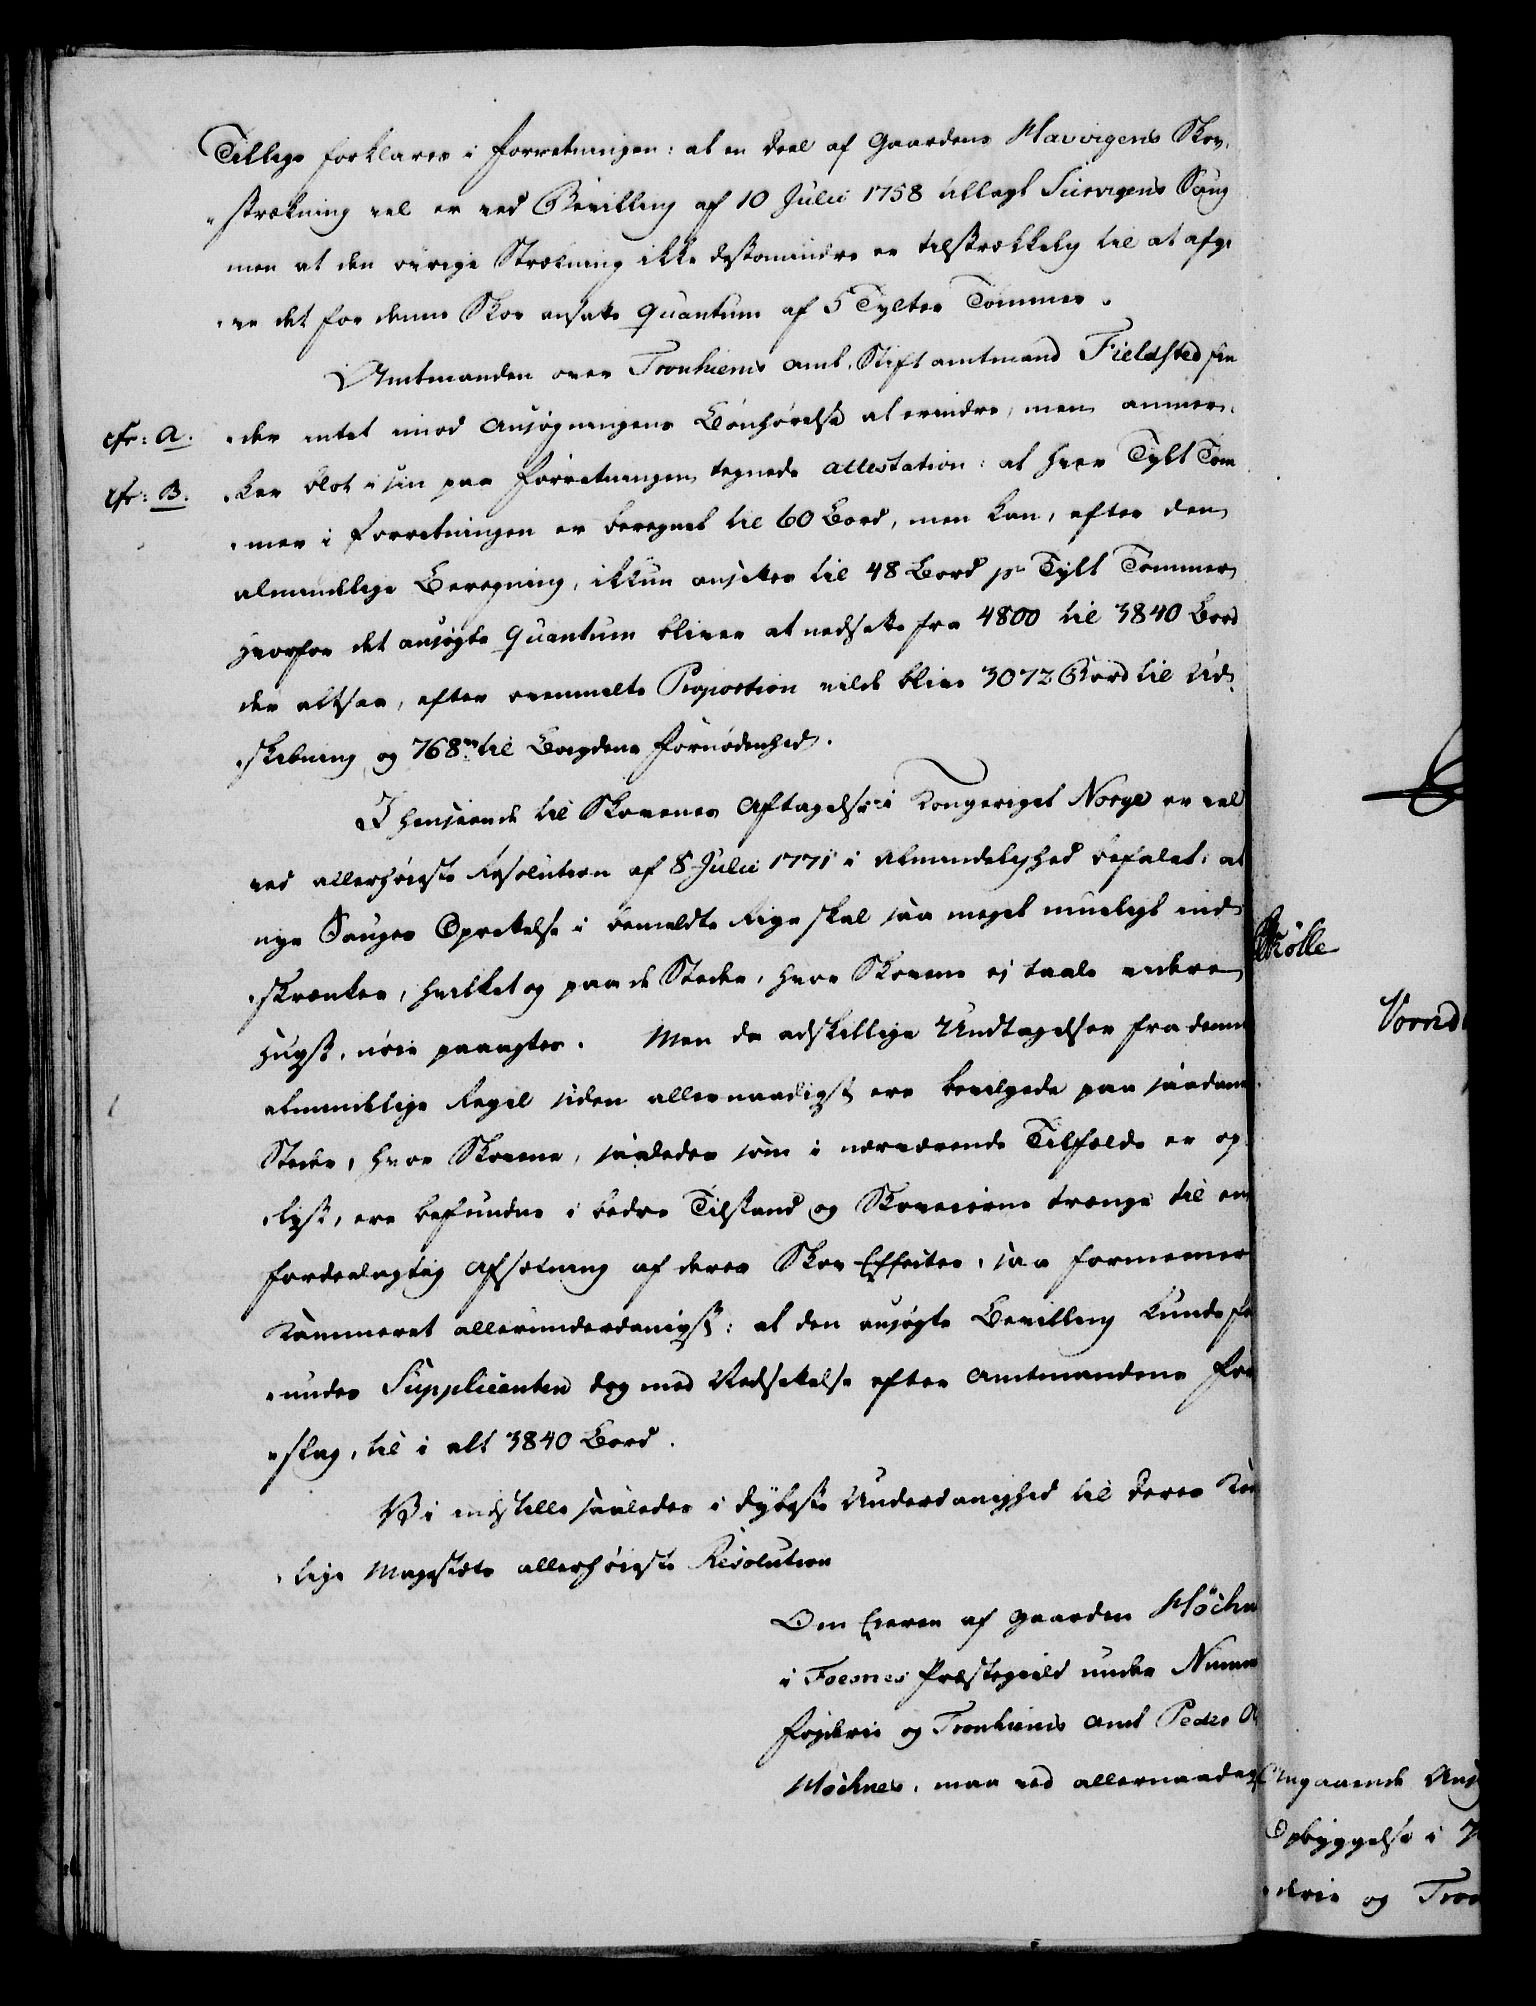 Tillige forklares i Forretningen: at en Deel af Gaardens Havvigens Skov-
„strækning vel er ved Bevilling af 10 Julii 1758 tillagt Siervigens Saug
men at den øvrige Strækning ikke destomindre er tilstrækkelig til at afgi-
„ve det for denne Skov ansatte Quantum af 5 Tylter Tømmer.
Amtmanden over Tronhiems Amt, Stiftamtmand Fieldsted fin
cfr: A. „der intet imod Ansøgningens Bønhørelse at erindre, men anmer-
cfr: B. „ker blot i sin paa Forretningen tegnede Attestation: at hver Tylt Tøm
„mer i Forretningen er beregnet til 60 Bord, men kan, efter den
almindelige Beregning, ikkun ansættes til 48 Bord pr Tylt Tømmer
hvorfor det ansøgte Quantum bliver at nedsætte fra 4800 til 3840 Bord
der altsaa, efter ovenmelte Proportion vilde blive 3072 Bord til Ud-
„skibning og 768 til Bøigdens Fornødenhed.
I Henseende til Skovenes Aftagelse i Kongeriget Norge er vel
ved allerhøieste Resolution af 8 Julii 1771 i Almindelighed befalet: at
nye Sauges Oprettelse i bemeldte Rige skal saa meget mueligt ind-
„skrænkes, hvilket og paa de Steder, hvor Skovene ej taale videre
Hugst, nøie paaagtes. Men da adskillige Undtagelser fra denne
almindelige Regel siden allernaadigst ere bevilgede paa saadanne
Steder, hvor Skovene, saaledes som i nærværende Tilfælde er op-
„lyst, ere befundne i bedre Tilstand og Skoveierne trænge til en
fordeelagtig Afsætning af deres Skov Effecter, saa formener
Kammeret allerunderdanigst: at den ansøgte Bevilling kunde for
„undes Supplicanten dog med Nedsættelse efter Amtmandens For
„slag, til i alt 3840 Bord.
Vi indstille saaledes i dybeste Underdanighed til Deres Kon
„lige Majestæts allerhøieste Resolution
Om Eieren af Gaarden Høikn
i Foesnes Præstegield under Numm
Fogderie og Tronhiems Amt Peder O
Høiknes, maa ved allernaadigst
Skølle
Vornd
Angaaende Ans
Opbyggelse i
„derie og Tron